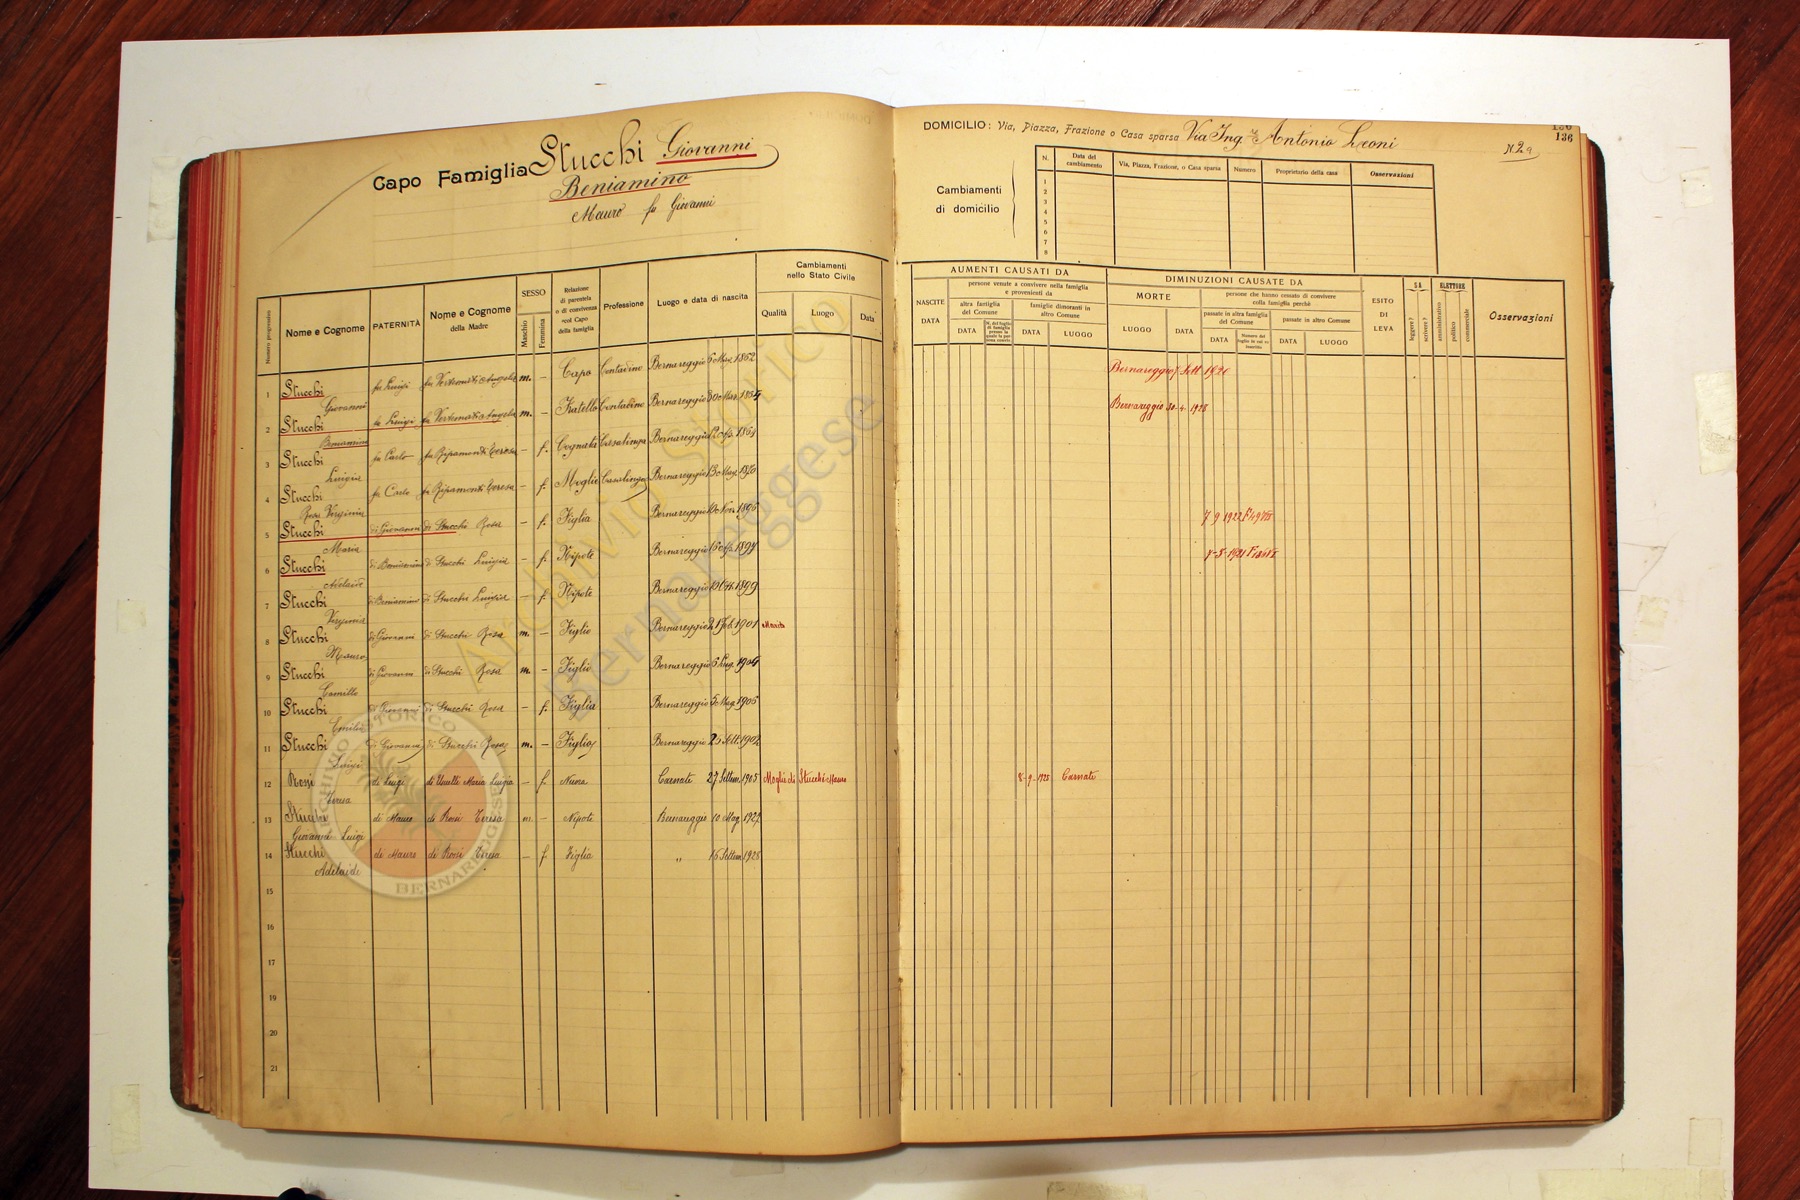 Capo Famiglia Stucchi Giovanni
Beniamino
Mauro fu Giovanni
DOMICILIO: Via, Piazza, Frazione o Casa sparsa Via Ing. Antonio Leoni
136
N. 2a
Cambiamenti di domicilio
N. Data del cambiamento Via, Piazza, Frazione, o Casa sparsa Numero Proprietario della casa Osservazioni
1
2
3
4
5
6
7
8
Numero progressivo
Nome e Cognome
PATERNITÀ
Nome e Cognome della Madre
SESSO
Maschio
Femmina
Relazione di parentela o di convivenza col Capo della famiglia
Professione
Luogo e data di nascita
Cambiamenti nello Stato Civile
Qualità
Luogo
Data
AUMENTI CAUSATI DA
NASCITE
DATA
persone venute a convivere nella famiglia e provenienti da
altra famiglia del Comune
DATA
famiglie dimoranti in altro Comune
DATA
LUOGO
DIMINUZIONI CAUSATE DA
MORTE
LUOGO
DATA
persone che hanno cessato di convivere colla famiglia perchè
passate in altra famiglia del Comune
DATA
passate in altro Comune
DATA
LUOGO
ESITO DI LEVA
SA
leggere?
scrivere?
ELETTORE
amministrativo
politico
commerciale
Osservazioni
1 Stucchi Giovanni fu Luigi fu Vertemati Angela m. – Capo Contadino Bernareggio 6 Mag. 1862 Bernareggio 7 Sett 1926
2 Stucchi Beniamino fu Luigi fu Vertemati Angela m. – Fratello Contadino Bernareggio 30 Mar. 1854 Bernareggio 30-4-1928
3 Stucchi Luigia fu Carlo fu Ripamonti Teresa – f. Cognata Casalinga Bernareggio
4 Stucchi Rosa Virginia fu Carlo fu Ripamonti Teresa – f. Moglie Casalinga Bernareggio 13 Mag. 1870
5 Stucchi Maria di Giovanni di Stucchi Rosa – f. Figlia Bernareggio Nov. 1896 7 9 1922
6 Stucchi Adelaide di Beniamino di Stucchi Luigia – f. Nipote Bernareggio 1897 7-5-1921
7 Stucchi Virginia di Beniamino di Stucchi Luigia – f. Nipote Bernareggio 1899
8 Stucchi Mauro di Giovanni di Stucchi Rosa m. – Figlio Bernareggio 21 Feb. 1901 Marito
9 Stucchi Camillo di Giovanni di Stucchi Rosa m. – Figlio Bernareggio 6 1904
10 Stucchi Emilia di Giovanni di Stucchi Rosa – f. Figlia Bernareggio 5 Mag. 1906
11 Stucchi Luigi di Giovanni di Stucchi Rosa m. – Figlio Bernareggio 25 Sett. 1902
12 Roni Teresa di Luigi di Maria Luigia – f. Nuora Carnate 27 Settem. 1905 Moglie di Stucchi Mauro 8-9-1925 Carnate
13 Stucchi Giovanni Luigi di Mauro di Roni Teresa m. – Nipote Bernareggio 10 Mag. 1927
14 Stucchi Adelaide di Mauro di Roni Teresa – f. Figlia „ 16 Settem. 1928
15
16
17
18
19
20
21
Archivio Storico
Bernareggese
ARCHIVIO STORICO
BERNAREGGESE